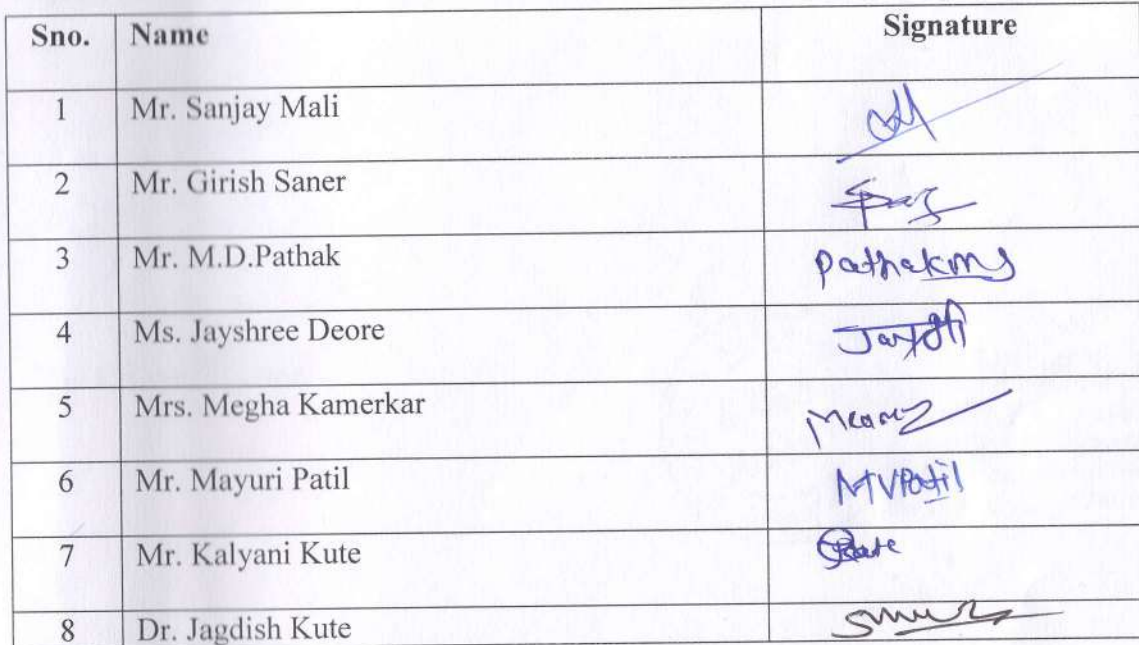 Sno. Name Signature
1 Mr. Sanjay Mali
2 Mr. Girish Saner
3 Mr. M.D.Pathak Pathakmd
4 Ms. Jayshree Deore
5 Mrs. Megha Kamerkar
6 Mr. Mayuri Patil MVPatil
7 Mr. Kalyani Kute
8 Dr. Jagdish Kute